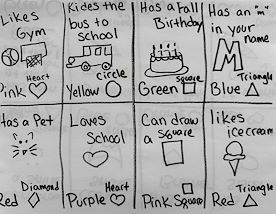 Likes
Gym
Pink Heart
Rides the
bus to
School
Yellow circle
Has a Fall
Birthday
Green square
Has an "m"
in your
name
M
Blue Triangle
Has a Pet
Red Diamond
Loves
School
Purple Heart
Can draw
a square
Pink Square
likes
ice cream
Red Triangle